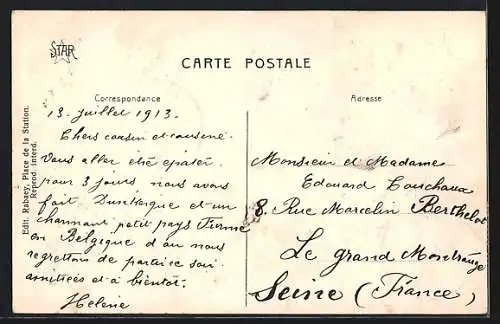 STAR
CARTE POSTALE
Correspondance
Adresse
Edit. Rabaey, Place de la Station.
Reprod. interd.
13. juillet 1913.
Chers cousin et cousine
Vous aller etre épatés.
pour 3 jours nous avons
fait Dunkerque et un
charmant petit pays Furnes
en Belgique d'ou nous
regrettons de partir ce soir
amitiées et à bientôt.
Hélène
Monsieur et Madame
Edouard
8. Rue Marcelin Berthelot
Le grand Montrouge
Seine (France)